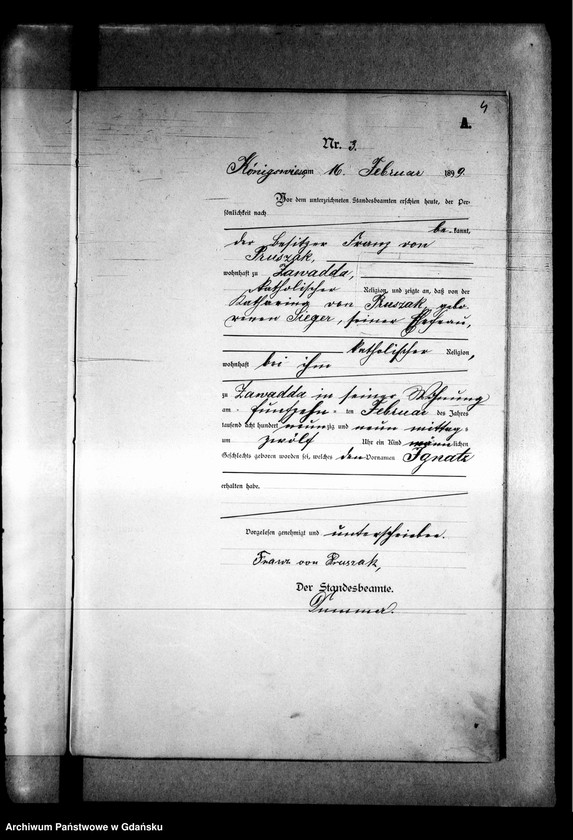 4
A.
Nr. 3.
Königswiese am 16. Februar 1899.
Vor dem unterzeichneten Standesbeamten erschien heute, der Per-
sönlichkeit nach
be-kannt,
der Besitzer Franz von
Pruszak,
wohnhaft zu Zawadda,
katholischer Religion, und zeigte an, daß von der
Katharina von Pruszak, gebo-
renen Sieger, seiner Ehefrau,
katholischer Religion,
wohnhaft bei ihm
zu Zawadda in seiner Wohnung
am fünfzehn-ten Februar des Jahres
tausend acht hundert neunzig und neun mittag-
um zwölf Uhr ein Kind männlichen
Geschlechts geboren worden sei, welches den Vornamen Ignatz
erhalten habe.
Vorgelesen, genehmigt und unterschrieben.
Franz von Pruszak,
Der Standesbeamte.
Archiwum Państwowe w Gdańsku